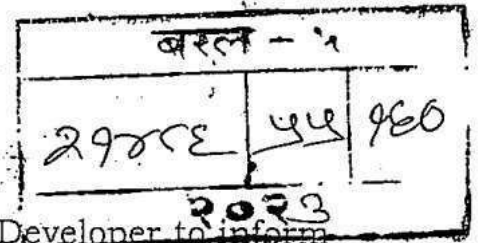 बरल - ५
२१४८६ ५५ १६०
२०२३
Developer to inform